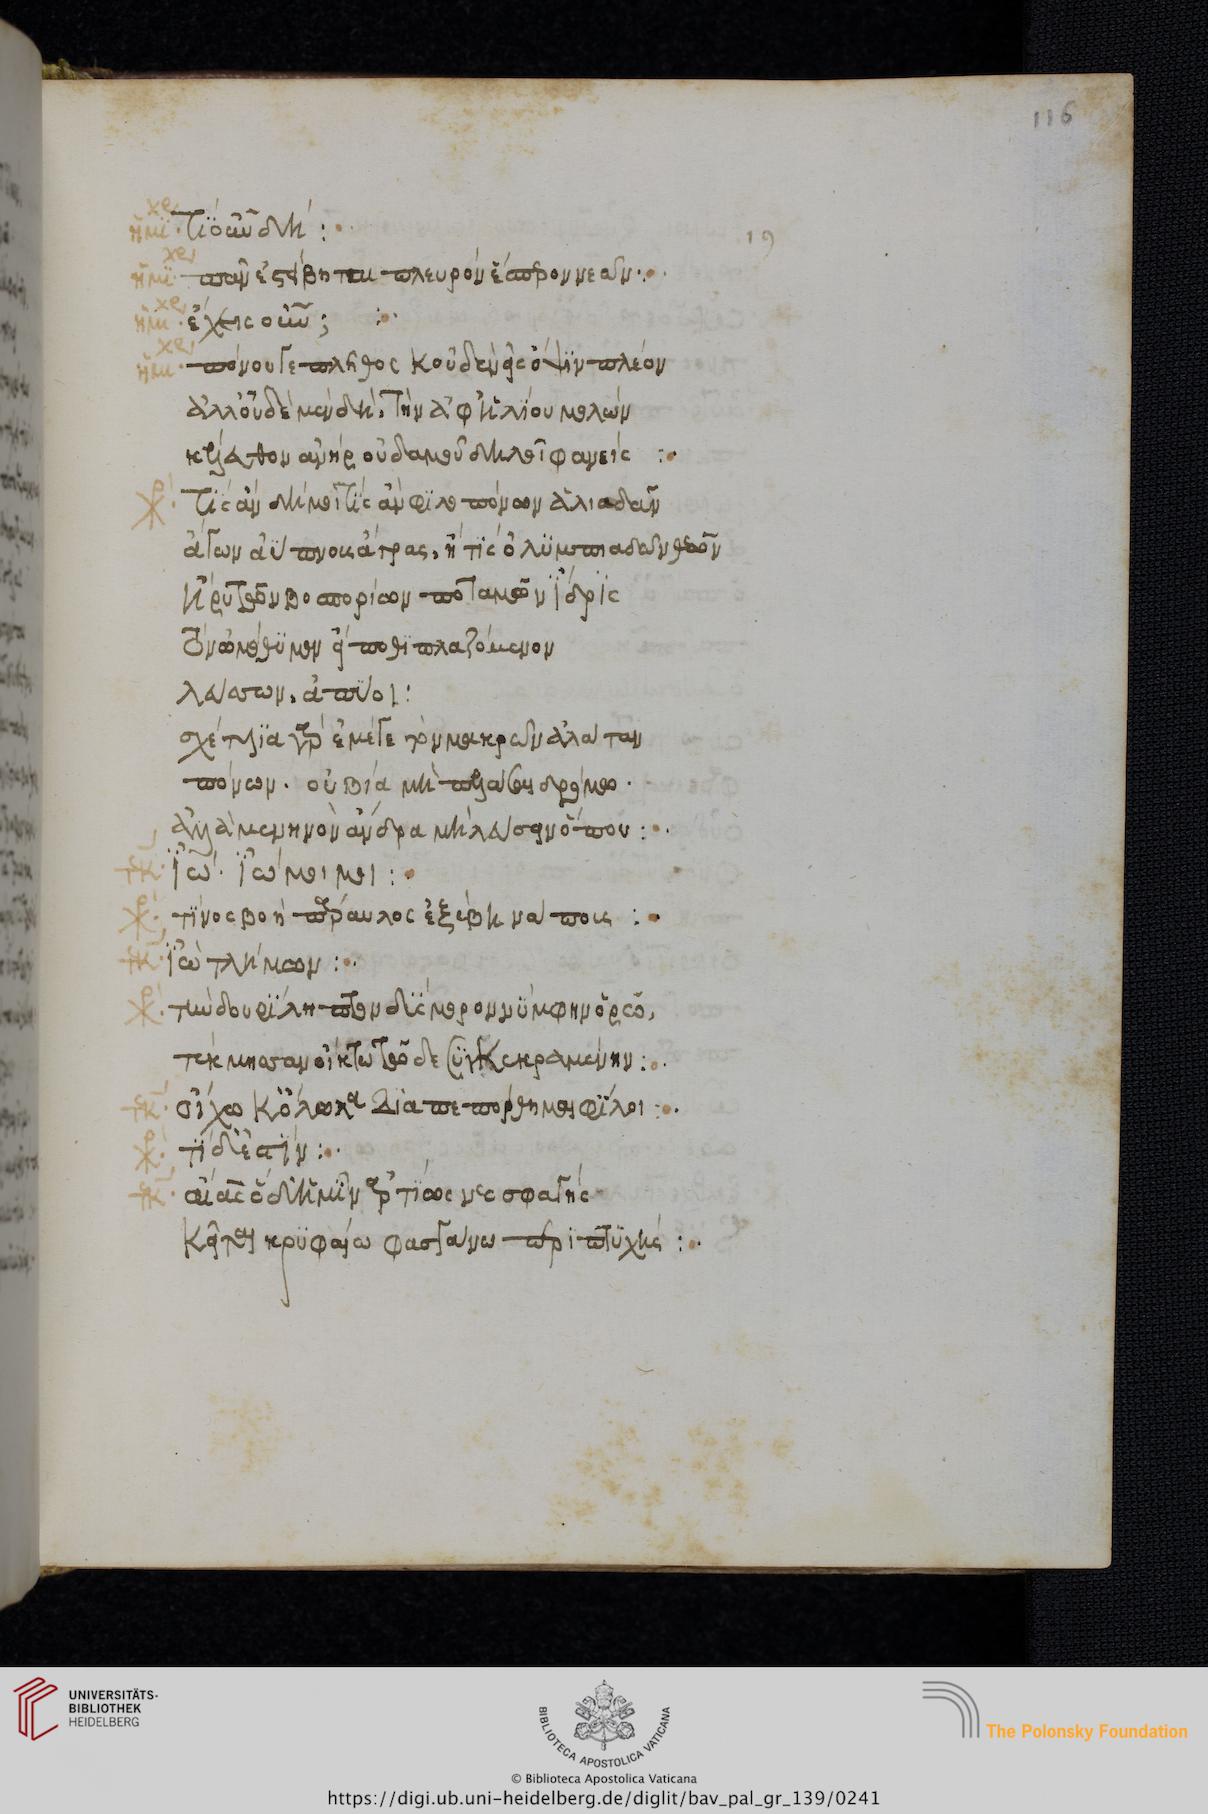 116
19
ἡμι χο τί οὖν δή :
ἡμι χο πᾶν ἐστίβηται πλευρὸν ἕσπερον νεῶν :
ἡμι χο ἔχεις οὖν ;
ἡμι χο πόνου γε πλῆθος κοὐδὲν εἰς ὄψιν πλέον
ἀλλ' οὐδὲ μὲν δὴ, τὴν ἀφ' ἡλίου βολῶν
κέλευθον ἀνὴρ οὐδαμοῦ δηλοῖ φανείς :
χο τίς ἂν δή μοι τίς ἂν φιλοπόνων ἁλιαδᾶν
ἔχων ἀΰπνους ἄγρας, ἢ τίς ὀλυμπιάδων θεῶν
ἢ ῥυτῶν βοσπορίων ποταμῶν ἴδρις
τὸν ὠμόθυμον εἴ ποθι πλαζόμενον
λεύσσων, ἀπύοι :
σχέτλια γὰρ ἐμέ γε τὸν μακρῶν ἀλάταν
πόνων. οὐρίῳ μὴ πελάσαι δρόμῳ.
ἀλλ' ἀμενηνὸν ἄνδρα μὴ λεύσσειν ὅπου :
τέκ ἰὼ. ἰώ μοι μοι :
χο τίνος βοὴ πάραυλος ἐξέβη νάπους :
τέκ ἰὼ τλήμων :
χο τὴν δουρίληπτον δύσμορον νύμφην ὁρῶ,
τέκμησσαν οἴκτῳ τῷδε συγκεκραμένην :
τέκ οἴχωκ' ὄλωλα διαπεπόρθημαι φίλοι :
χο τί δ' ἐστίν :
τέκ αἴας ὅδ' ἡμῖν ἀρτίως νεοσφαγὴς
κεῖται κρυφαίῳ φασγάνῳ περιπτυχής :
UNIVERSITÄTS-
BIBLIOTHEK
HEIDELBERG
BIBLIOTECA APOSTOLICA VATICANA
The Polonsky Foundation
© Biblioteca Apostolica Vaticana
https://digi.ub.uni-heidelberg.de/diglit/bav_pal_gr_139/0241